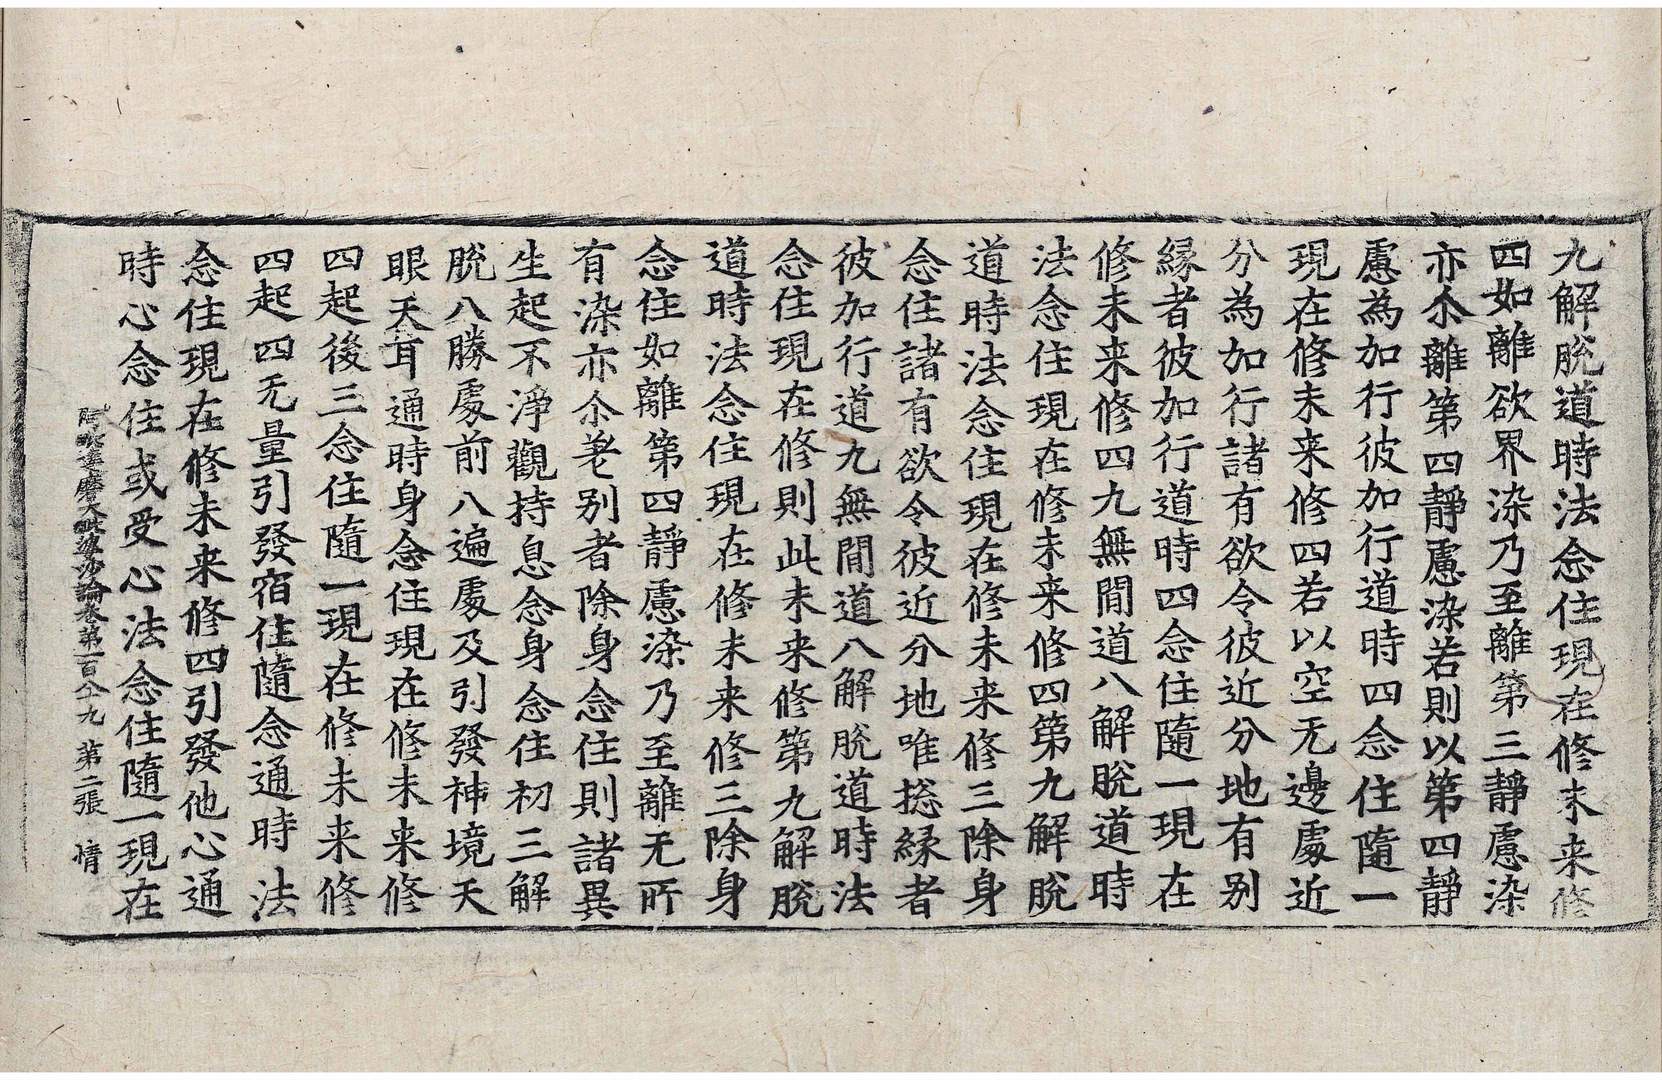 九解脫道時法念住現在修未来修
四如離欲界染乃至離第三靜慮染
亦尒離第四靜慮染若則以第四靜
慮為加行彼加行道時四念住隨一
現在修未来修四若以空无邊處近
分為加行諸有欲令彼近分地有別
緣者彼加行道時四念住隨一現在
修未来修四九無間道八解脫道時
法念住現在修未来修四第九解脫
道時法念住現在修未来修三除身
念住諸有欲令彼近分地唯揔緣者
彼加行道九無間道八解脫道時法
念住現在修則此未来修第九解脫
道時法念住現在修未来修三除身
念住如離第四靜慮染乃至離无所
有染亦尒差別者除身念住則諸異
生起不淨觀持息念身念住初三解
脫八勝處前八遍處及引發神境天
眼天耳通時身念住現在修未来修
四起後三念住隨一現在修未来修
四起四无量引發宿住隨念通時法
念住現在修未来修四引發他心通
時心念住或受心法念住隨一現在
阿毗達磨大毗婆沙論卷第一百八十九 第二張 情